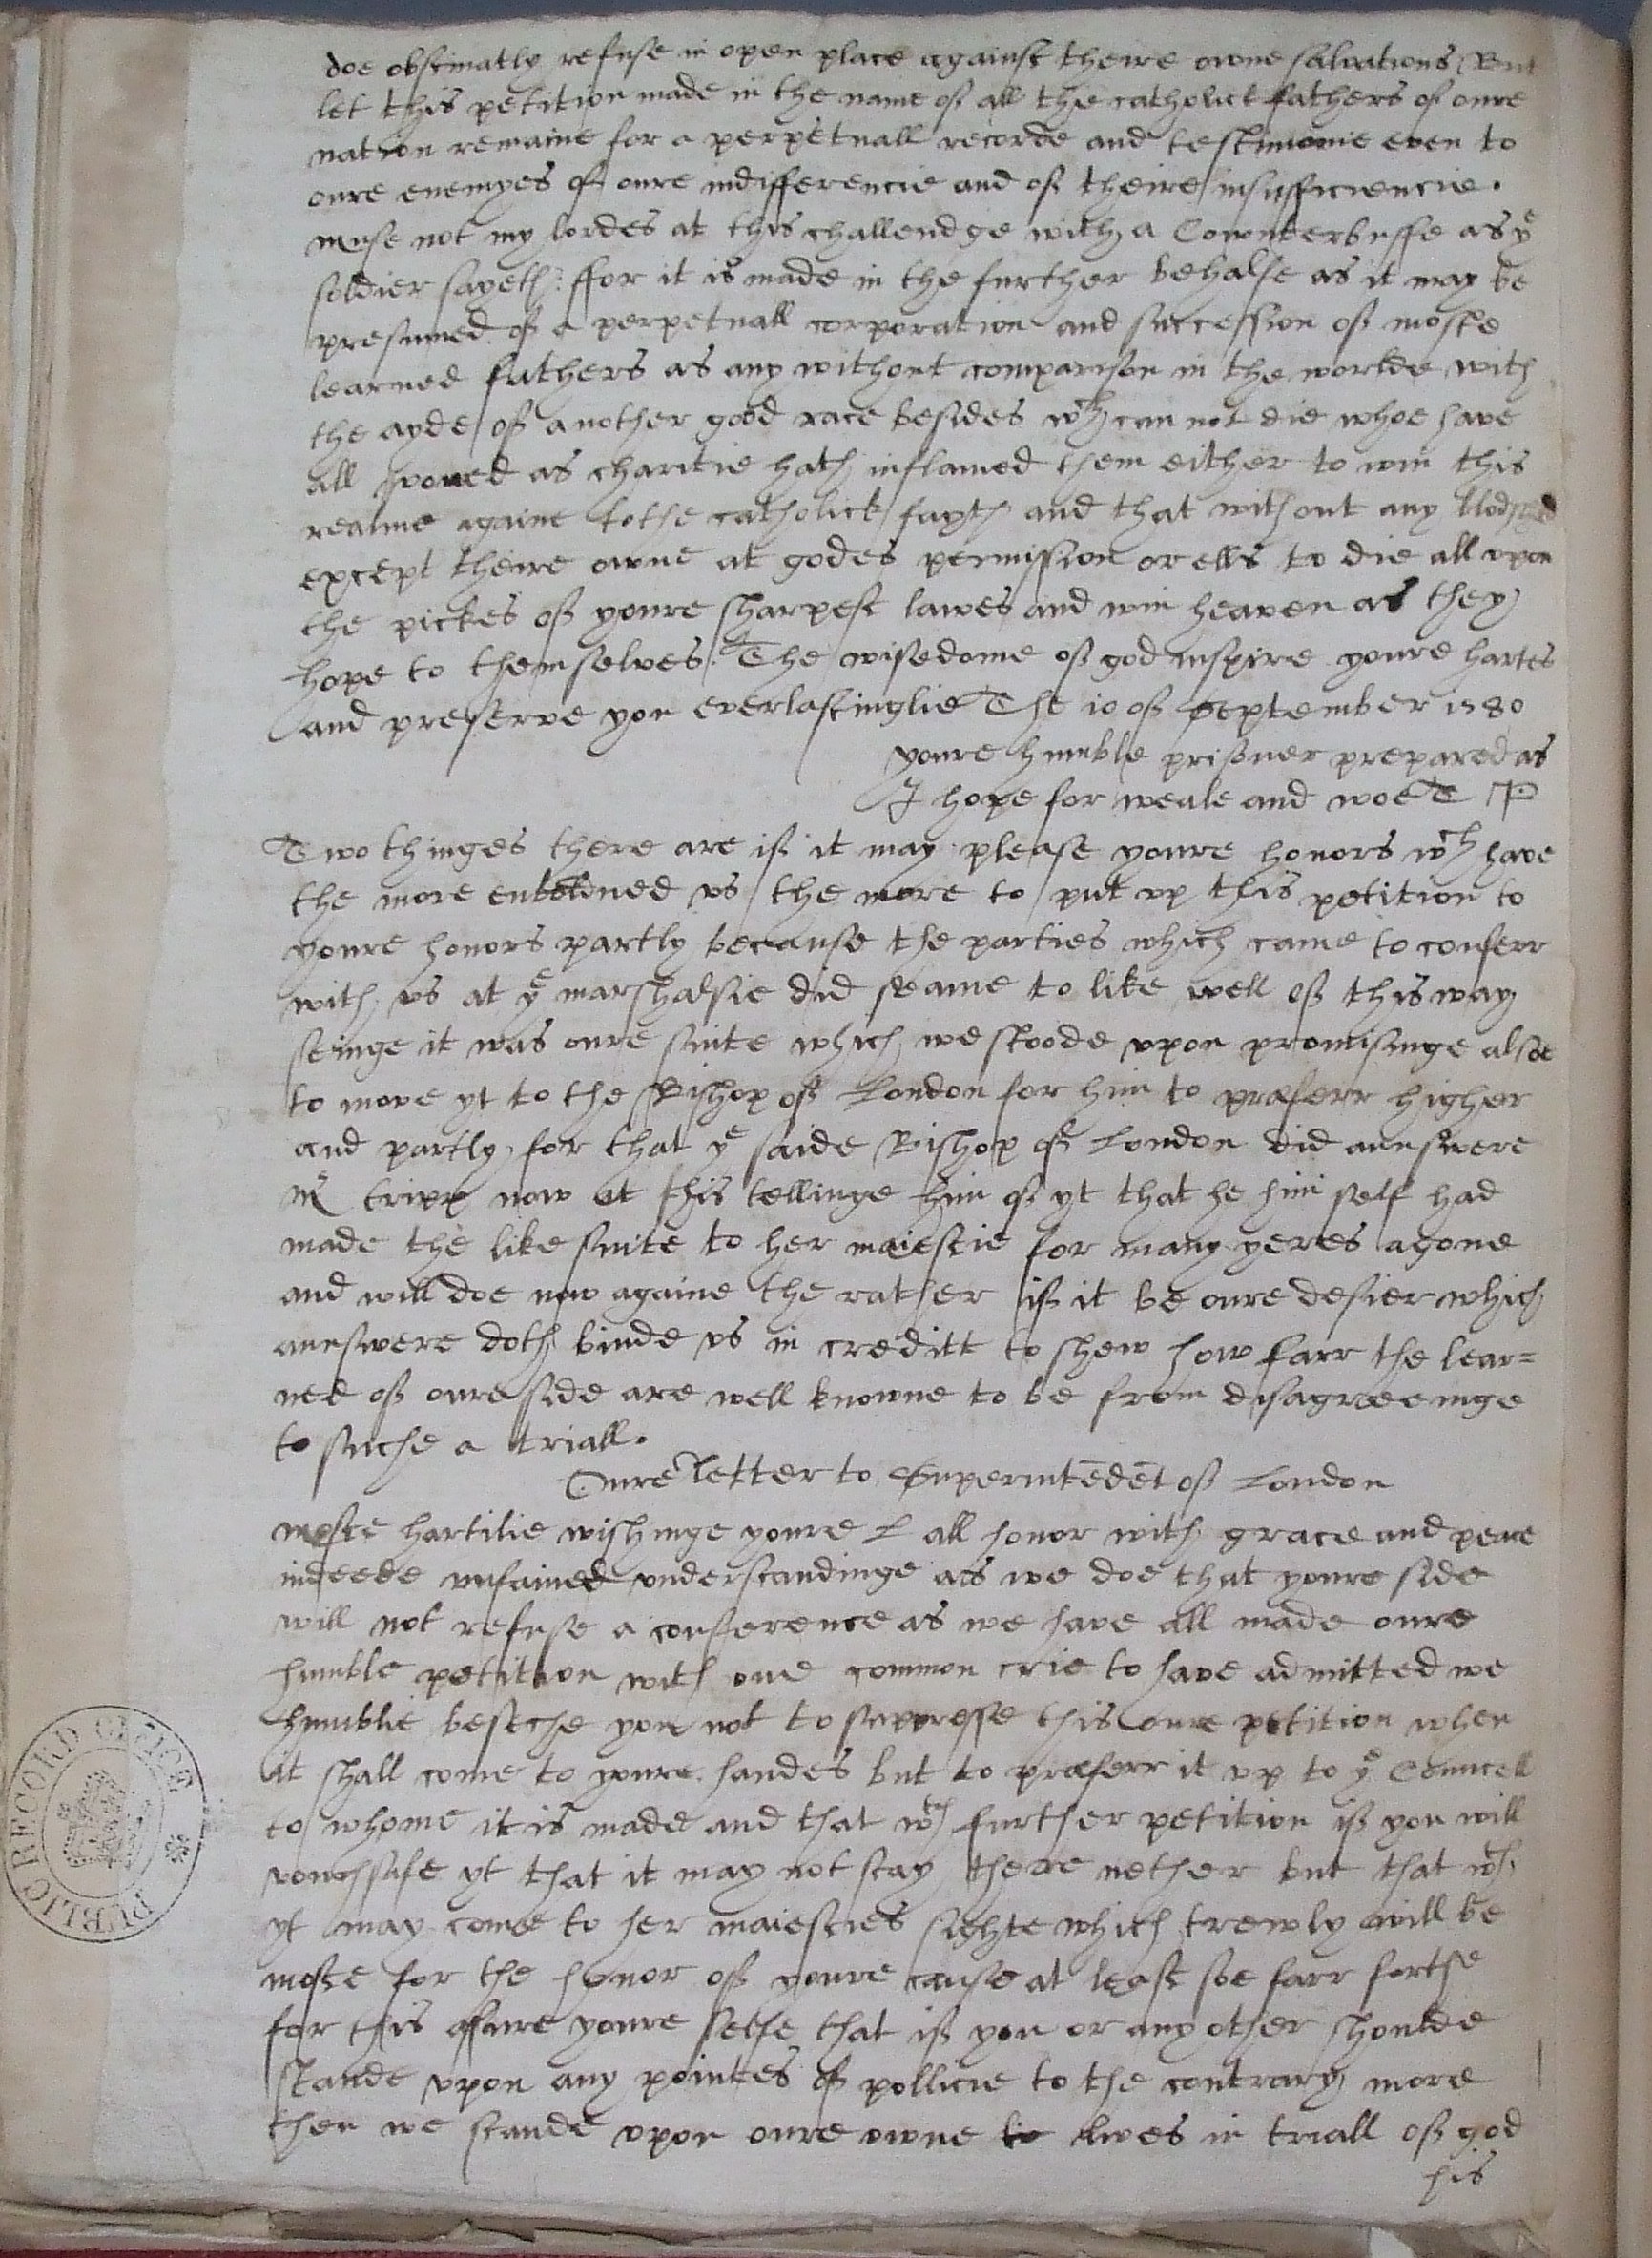 doe obstinatly refuse in open place against theire owne salvations But
let this petition made in the name off all the catholict fathers off oure
nation remaine for a perpetuall recorde and testimonie even to
oure enemyes off oure indifferencie and off theire insufficiencie.
muse not my lordes at this challendge with a Cownterbuffe as yͤ
soldier sayeth: ffor it is made in the further behalfe as it may be
presumed off a perpetuall corporation and succession off moste
learned fathers as any without comparison in the worlde with
the ayde off another good race besides wᶜʰ can not die whoe have
all vowed as charitie hath inflamed them either to win this
realme againe tothe catholick fayth and that without any blodshed
except theire owne at godes permission or ells to die all vpon
the pickes off youre sharpest lawes and win heaven as they
hope to themselves. The wisedome off god inspire youre hartes
and preserve you everlastinglie The 10 off September 1580
youre humble prisoner prepared as
I hope for weale and woe T P
Two thinges there are iff it may please youre honors wᶜʰ have
the more enboldned vs the more to put vp this petition to
youre honors partly because the parties which came to conferr
with vs at yͤ marshalsie did seame to like well off this way
seinge it was oure suite which we stoode vpon promisinge alsoe
to move yt to the Bishop off London for him to præferr higher
and partly for that yͤ saide Bishop off London did aunswere
Mʳ tripp now at his tellinge him off yt that he him self had
made the like suite to her maiestie for many yeres agone
and will doe now againe the rather iff it be oure desier which
aunswere doth binde vs in creditt to shew how farr the lear=
ned off oure side are well knowne to be from disagreeinge
to suche a triall.
Oure letter to Superintēdēt off London
moste hartilie wishinge youre L all honor with grace and peace
indeede vnfained vnderstandinge as we doe that youre side
will not refuse a conference as we have all made oure
humble petition with one common crie to have admitted we
humblie beseche you not to suppresse this oure petition when
it shall come to youre handes but to præferr it vp to yͤ Councell
to whome it is made and that wᵗʰ further petition iff you will
vouchsafe yt that it may not stay there nether but that wᵗʰ
yt may come to her maiesties sighte which trewly will be
moste for the honor off youre cause at least soe farr forthe
for this assure youre selfe that iff you or any other shoulde
stande vpon any pointes off pollicie to the contrary more
then we stande vpon oure owne lives in triall off god
his
PUBLIC RECORD OFFICE